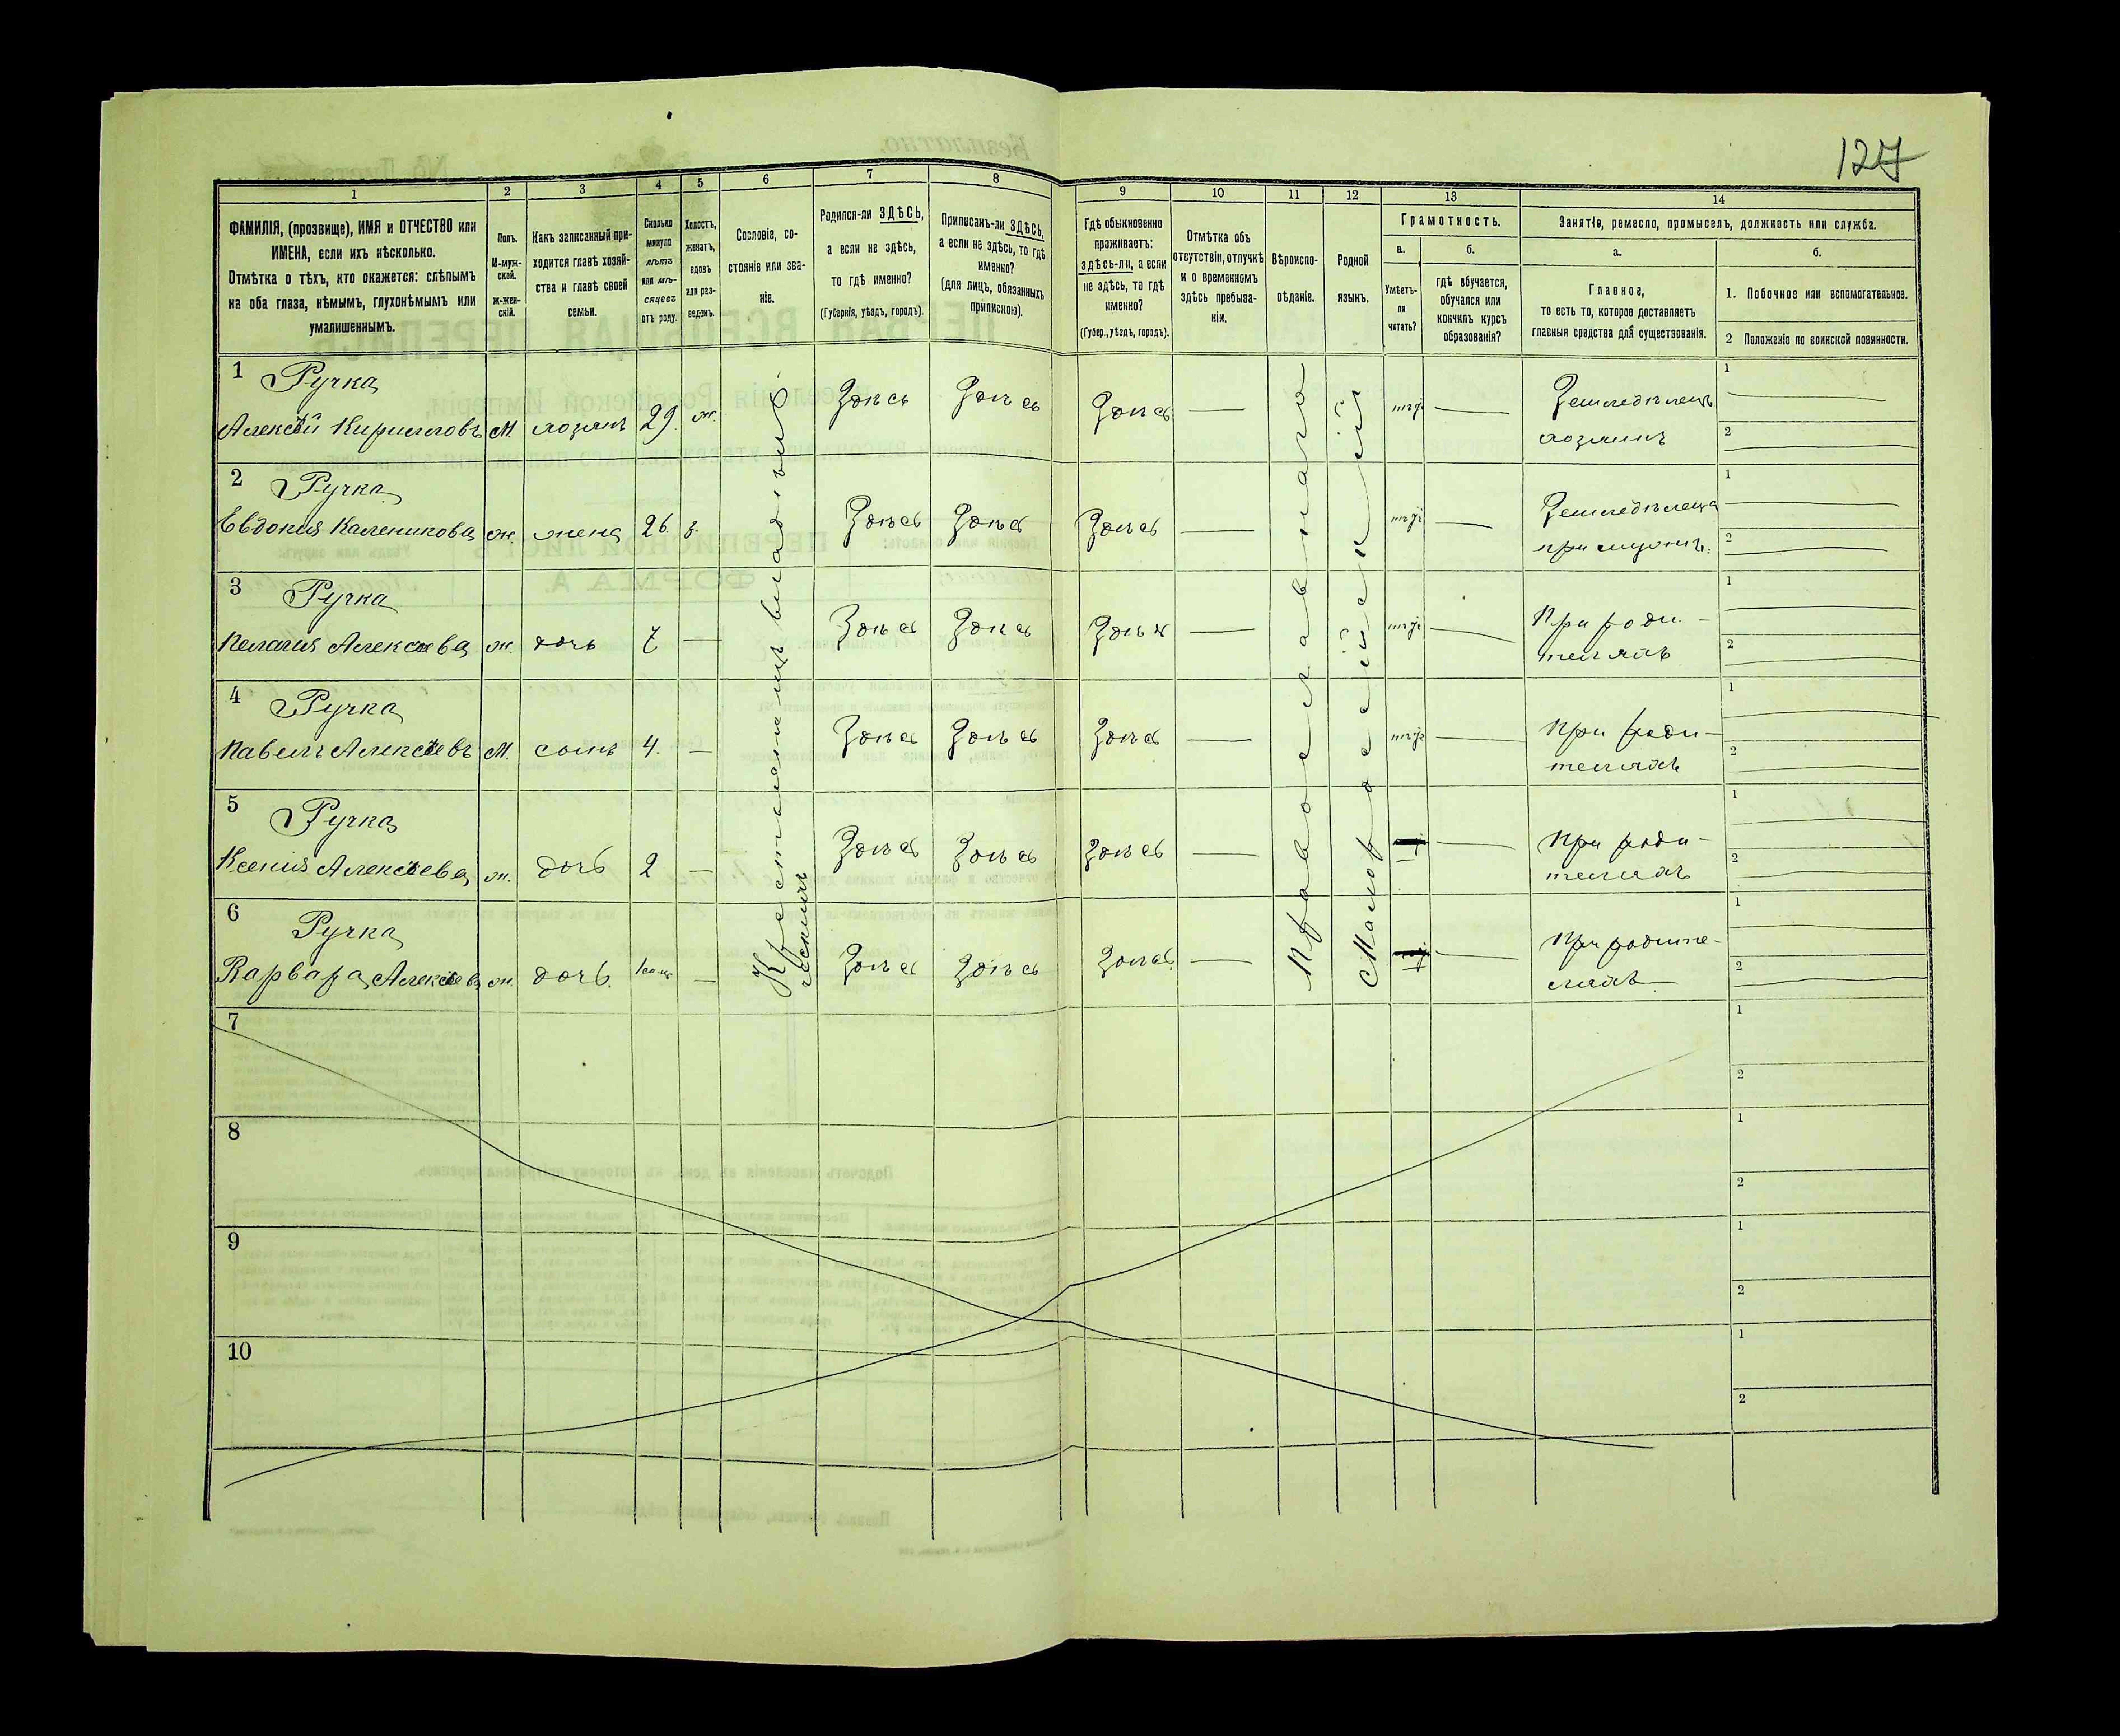 127
1
2
3
4
5
6
7
8
9
10
11
12
13
14
ФАМИЛІЯ, (прозвище), ИМЯ и ОТЧЕСТВО или
ИМЕНА, если ихъ нѣсколько.
Отмѣтка о тѣхъ, кто окажется: слѣпымъ
на оба глаза, нѣмымъ, глухонѣмымъ или
умалишеннымъ.
Полъ.
М-муж-
ской.
Ж-жен-
скій.
Какъ записанный при-
ходится главѣ хозяй-
ства и главѣ своей
семьи.
Сколько
минуло
лѣтъ
или мѣ-
сяцевъ
отъ роду.
Холостъ,
женатъ,
вдовъ
или раз-
веденъ.
Сословіе, со-
стояніе или зва-
ніе.
Родился-ли ЗДѢСЬ,
а если не здѣсь,
то гдѣ именно?
(Губернія, уѣздъ, городъ).
Приписанъ-ли ЗДѢСЬ,
а если не здѣсь, то гдѣ
именно?
(для лицъ, обязанныхъ
припискою).
Гдѣ обыкновенно
проживаетъ:
здѣсь-ли, а если
не здѣсь, то гдѣ
именно?
(Губер., уѣздъ, городъ).
Отмѣтка объ
отсутствіи, отлучкѣ
и о временномъ
здѣсь пребыва-
ніи.
Вѣроиспо-
вѣданіе.
Родной
языкъ.
Грамотность.
а.
б.
Умѣетъ-
ли
читать?
гдѣ обучается,
обучался или
кончилъ курсъ
образованія?
Занятія, ремесло, промыселъ, должность или служба.
а.
б.
Главное,
то есть то, которое доставляетъ
главныя средства для существованія.
1. Побочное или вспомогательное.
2 Положеніе по воинской повинности.
1 Ручка
Алексѣй Кирилловъ М. хозяинъ 29. ж. Здѣсь Здѣсь Здѣсь — нѣтъ — Земледѣлецъ
хозяинъ
1
2
2 Ручка
Евдокия Каленикова ж. жена 26. з. Здѣсь Здѣсь Здѣсь — нѣтъ — Земледѣлица
при мужѣ.
1
2
3 Ручка
Пелагия Алексѣева ж. дочь 7 — Здѣсь Здѣсь Здѣсь — нѣтъ — При роди-
теляхъ
1
2
4 Ручка
Павелъ Алексѣевъ М. сынъ 4. — Здѣсь Здѣсь Здѣсь — нѣтъ — При роди-
теляхъ
1
2
5 Ручка
Ксения Алексѣева ж. дочь 2 — Здѣсь Здѣсь Здѣсь — — При роди-
теляхъ
1
2
6 Ручка
Варвара Алексѣев ж. дочь — Здѣсь Здѣсь Здѣсь — — При родите-
ляхъ
1
2
Крестьянинъ
Православнаго
Малороссійскій
7
1
2
8
1
2
9
1
2
10
1
2